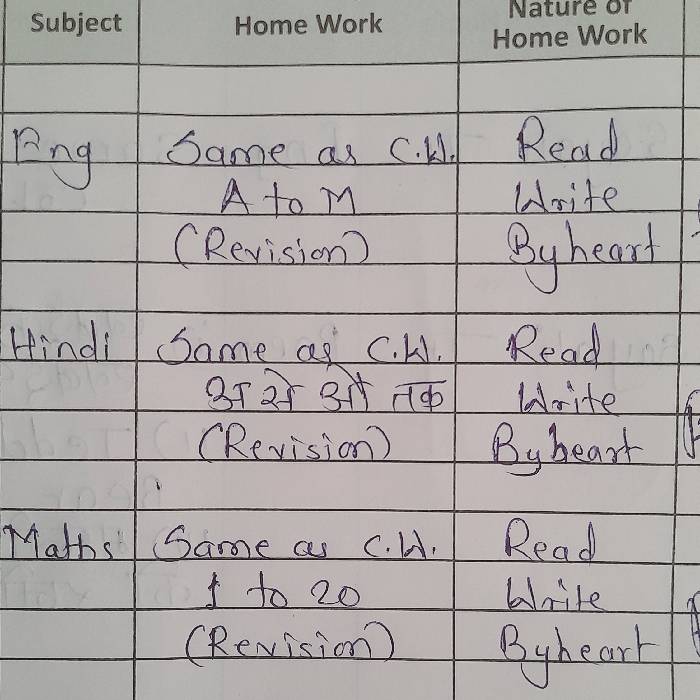 Subject Home Work Nature of Home Work
Eng Same as C.W. Read
A to M Write
(Revision) Byheart
Hindi Same as C.W. Read
अ से ओ तक Write
(Revision) Byheart
Maths Same as C.W. Read
1 to 20 Write
(Revision) Byheart